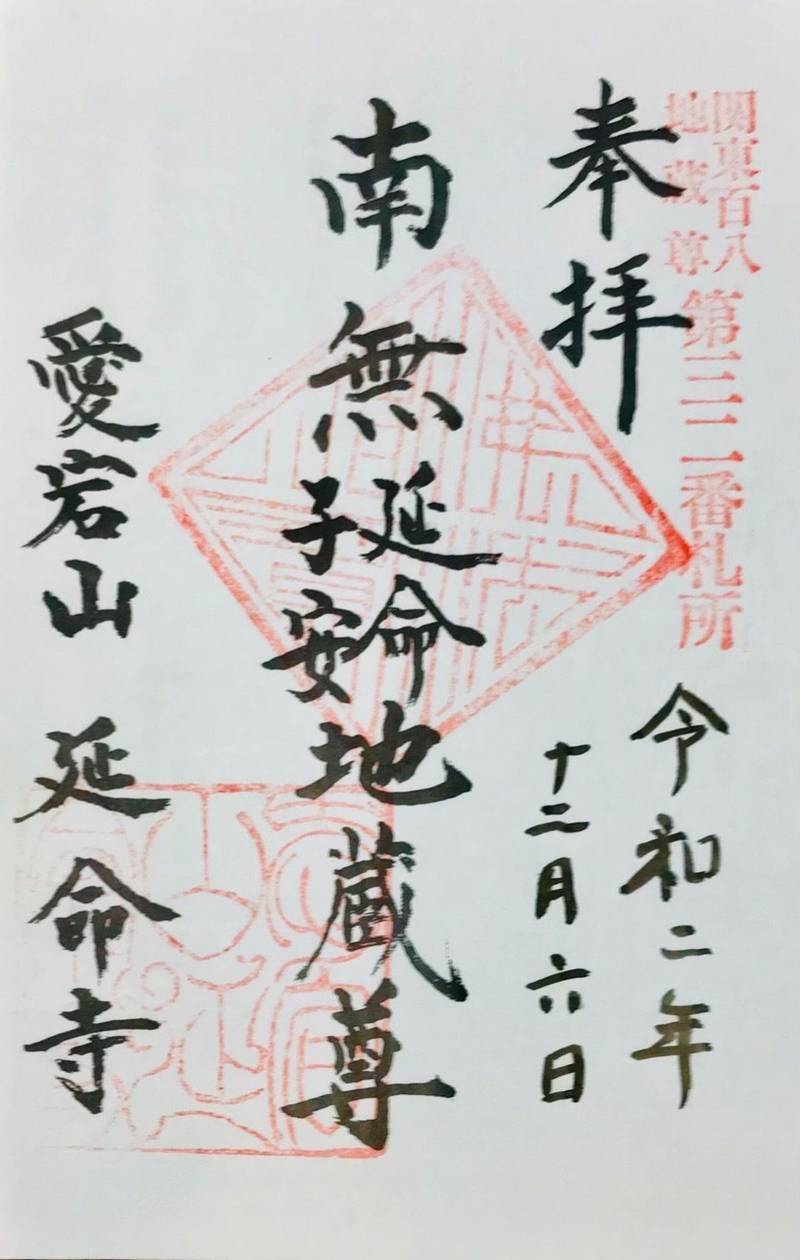 関東百八
地蔵尊
第三二番札所
奉拝
令和二年
十二月六日
南無
延命
子安
地蔵尊
愛岩山 延命寺